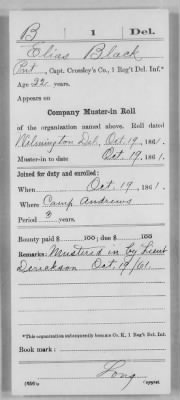 B 1 Del.
Elias Black
Pvt, Capt. Crossley's Co., 1 Reg't Del. Inf.*
Age 22 years.
Appears on
Company Muster-in Roll
of the organization named above. Roll dated
Wilmington Del, Oct. 19, 1861.
Muster-in to date Oct. 19, 1861.
Joined for duty and enrolled:
When Oct. 19, 1861.
Where Camp Andrews
Period 3 years.
Bounty paid $ 100; due $ 100
Remarks: Mustered in by Lieut
Derickson Oct, 19/61.
*This organization subsequently became Co. K, 1 Reg't Del. Inf.
Book mark:
Long
Copyist.